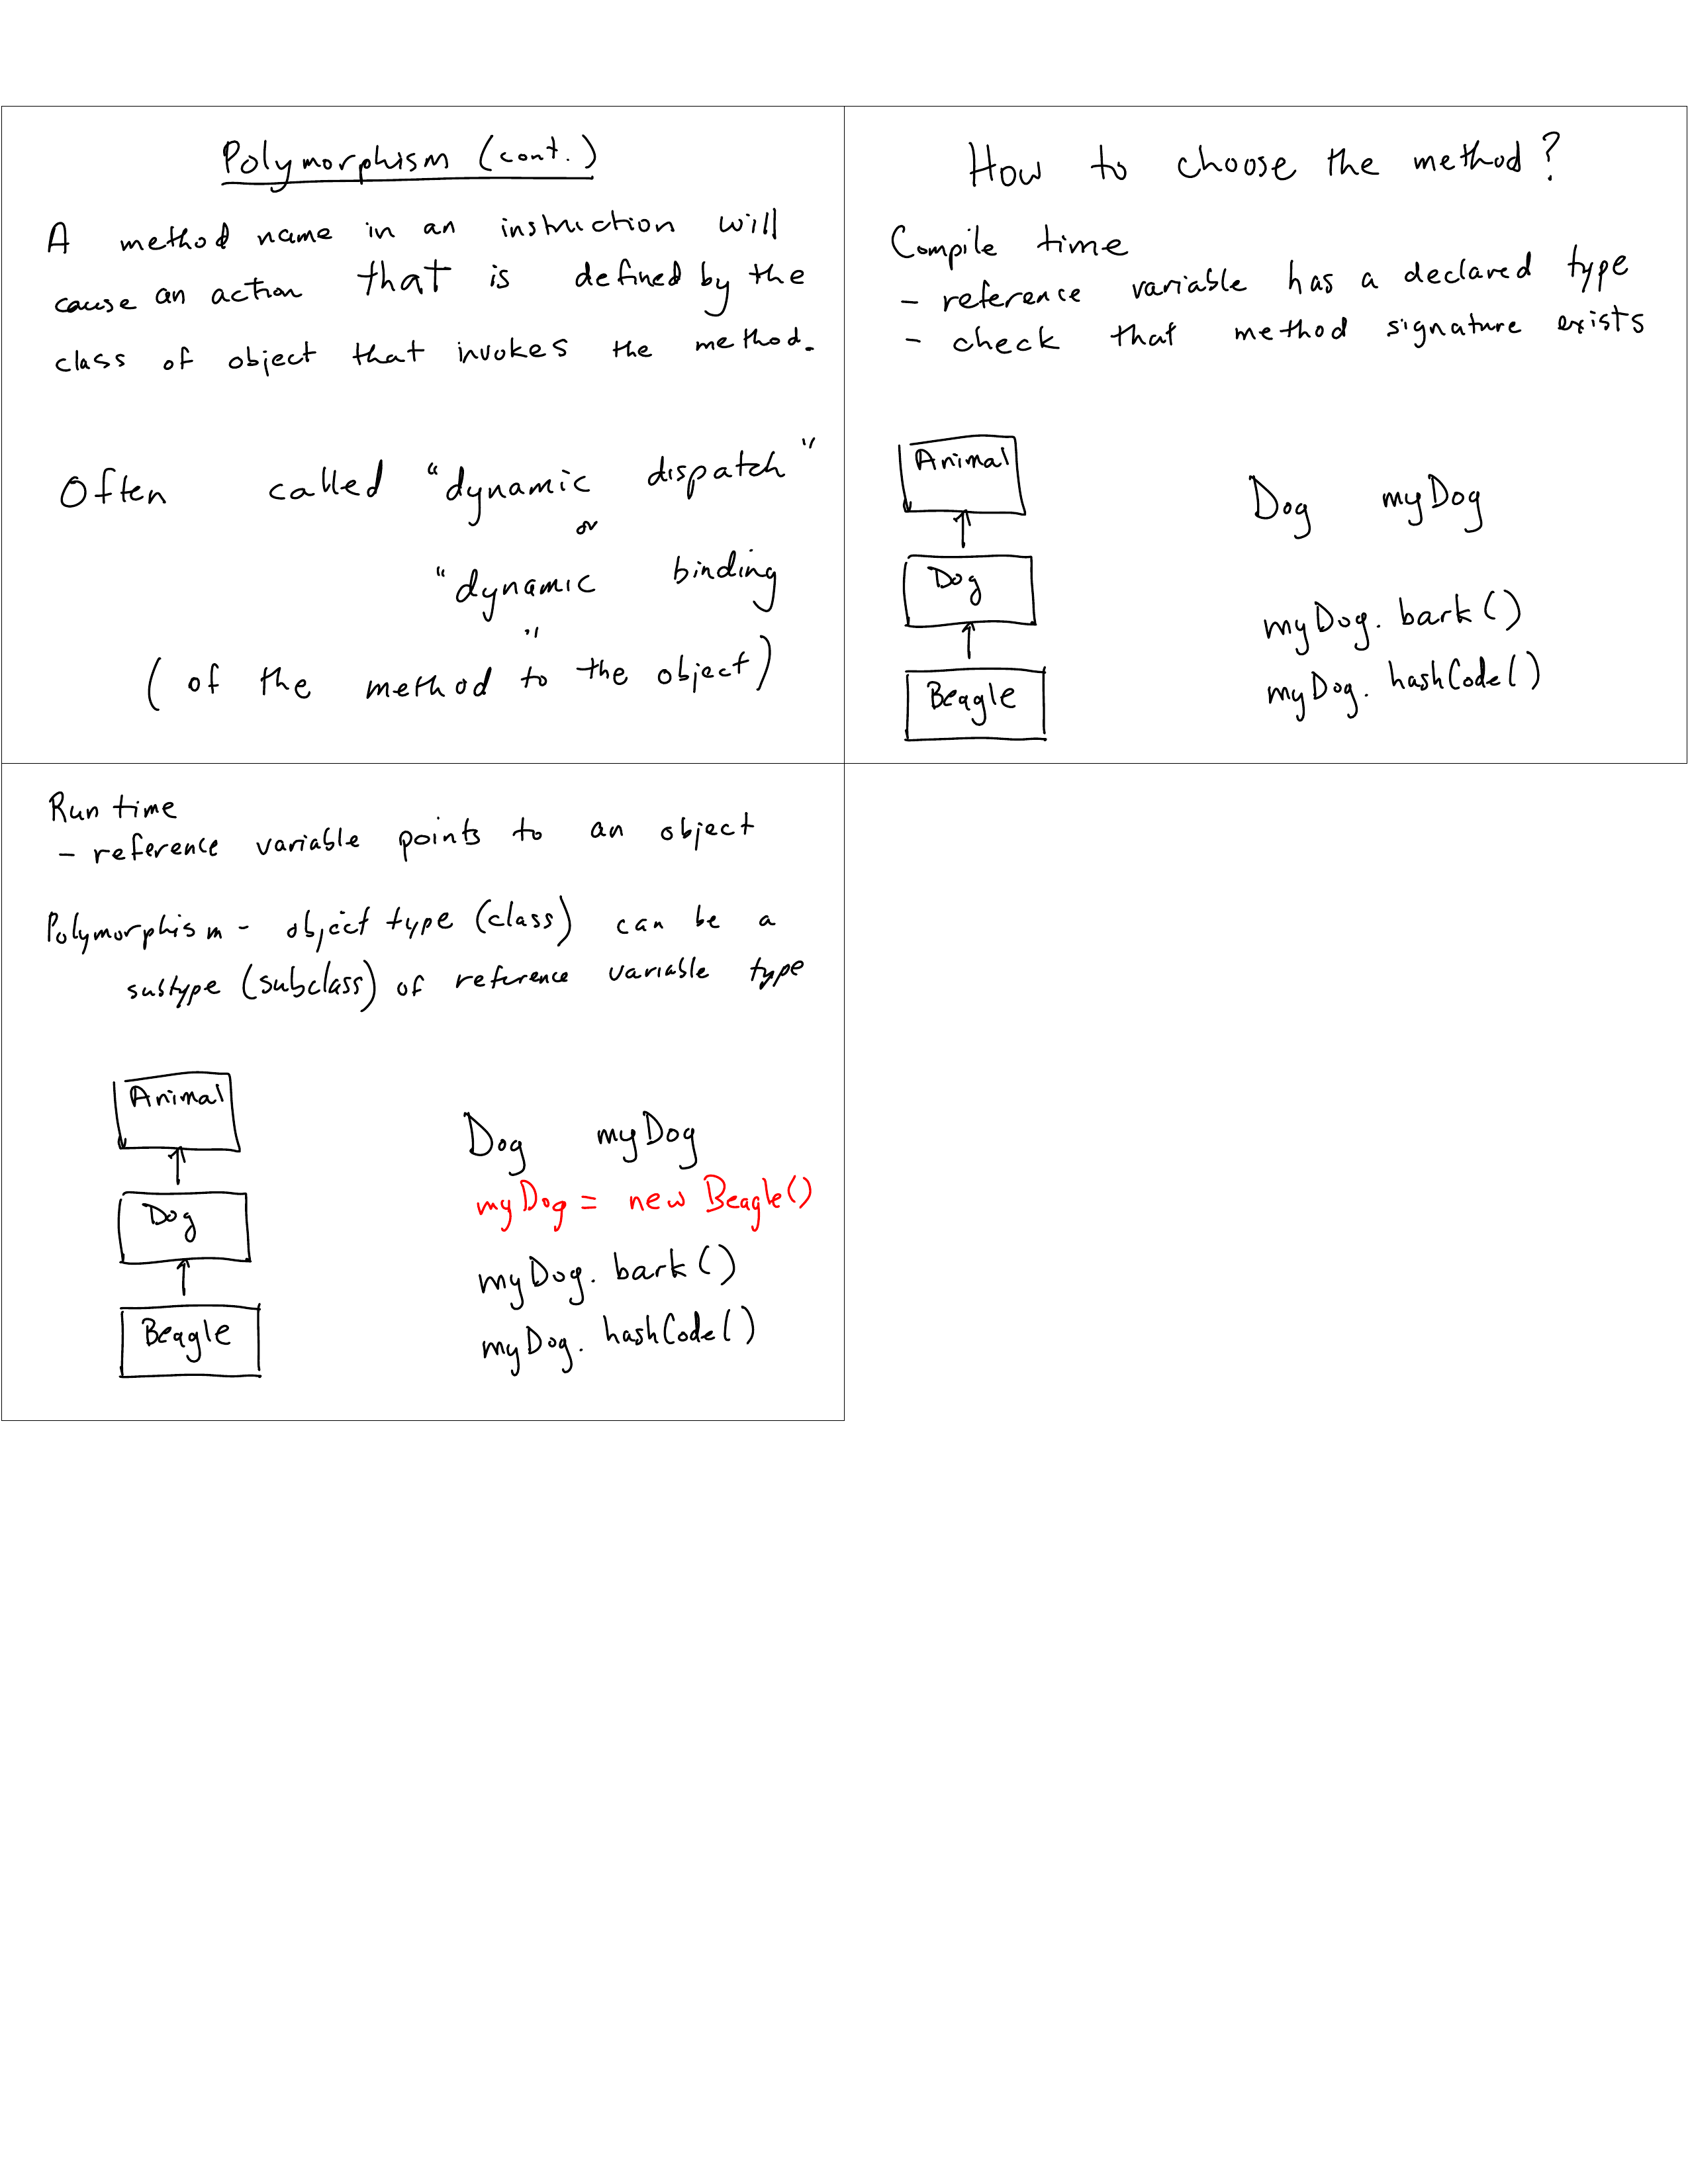 Polymorphism (cont.)
A method name in an instruction will
cause an action that is defined by the
class of object that invokes the method.
Often called "dynamic dispatch"
or
"dynamic binding
"
(of the method to the object)
How to choose the method?
Compile time
- reference variable has a declared type
- check that method signature exists
Animal
Dog
Beagle
Dog myDog
myDog. bark()
myDog. hashCode()
Run time
- reference variable points to an object
Polymorphism - object type (class) can be a
subtype (subclass) of reference variable type
Animal
Dog
Beagle
Dog myDog
myDog = new Beagle()
myDog. bark()
myDog. hashCode()